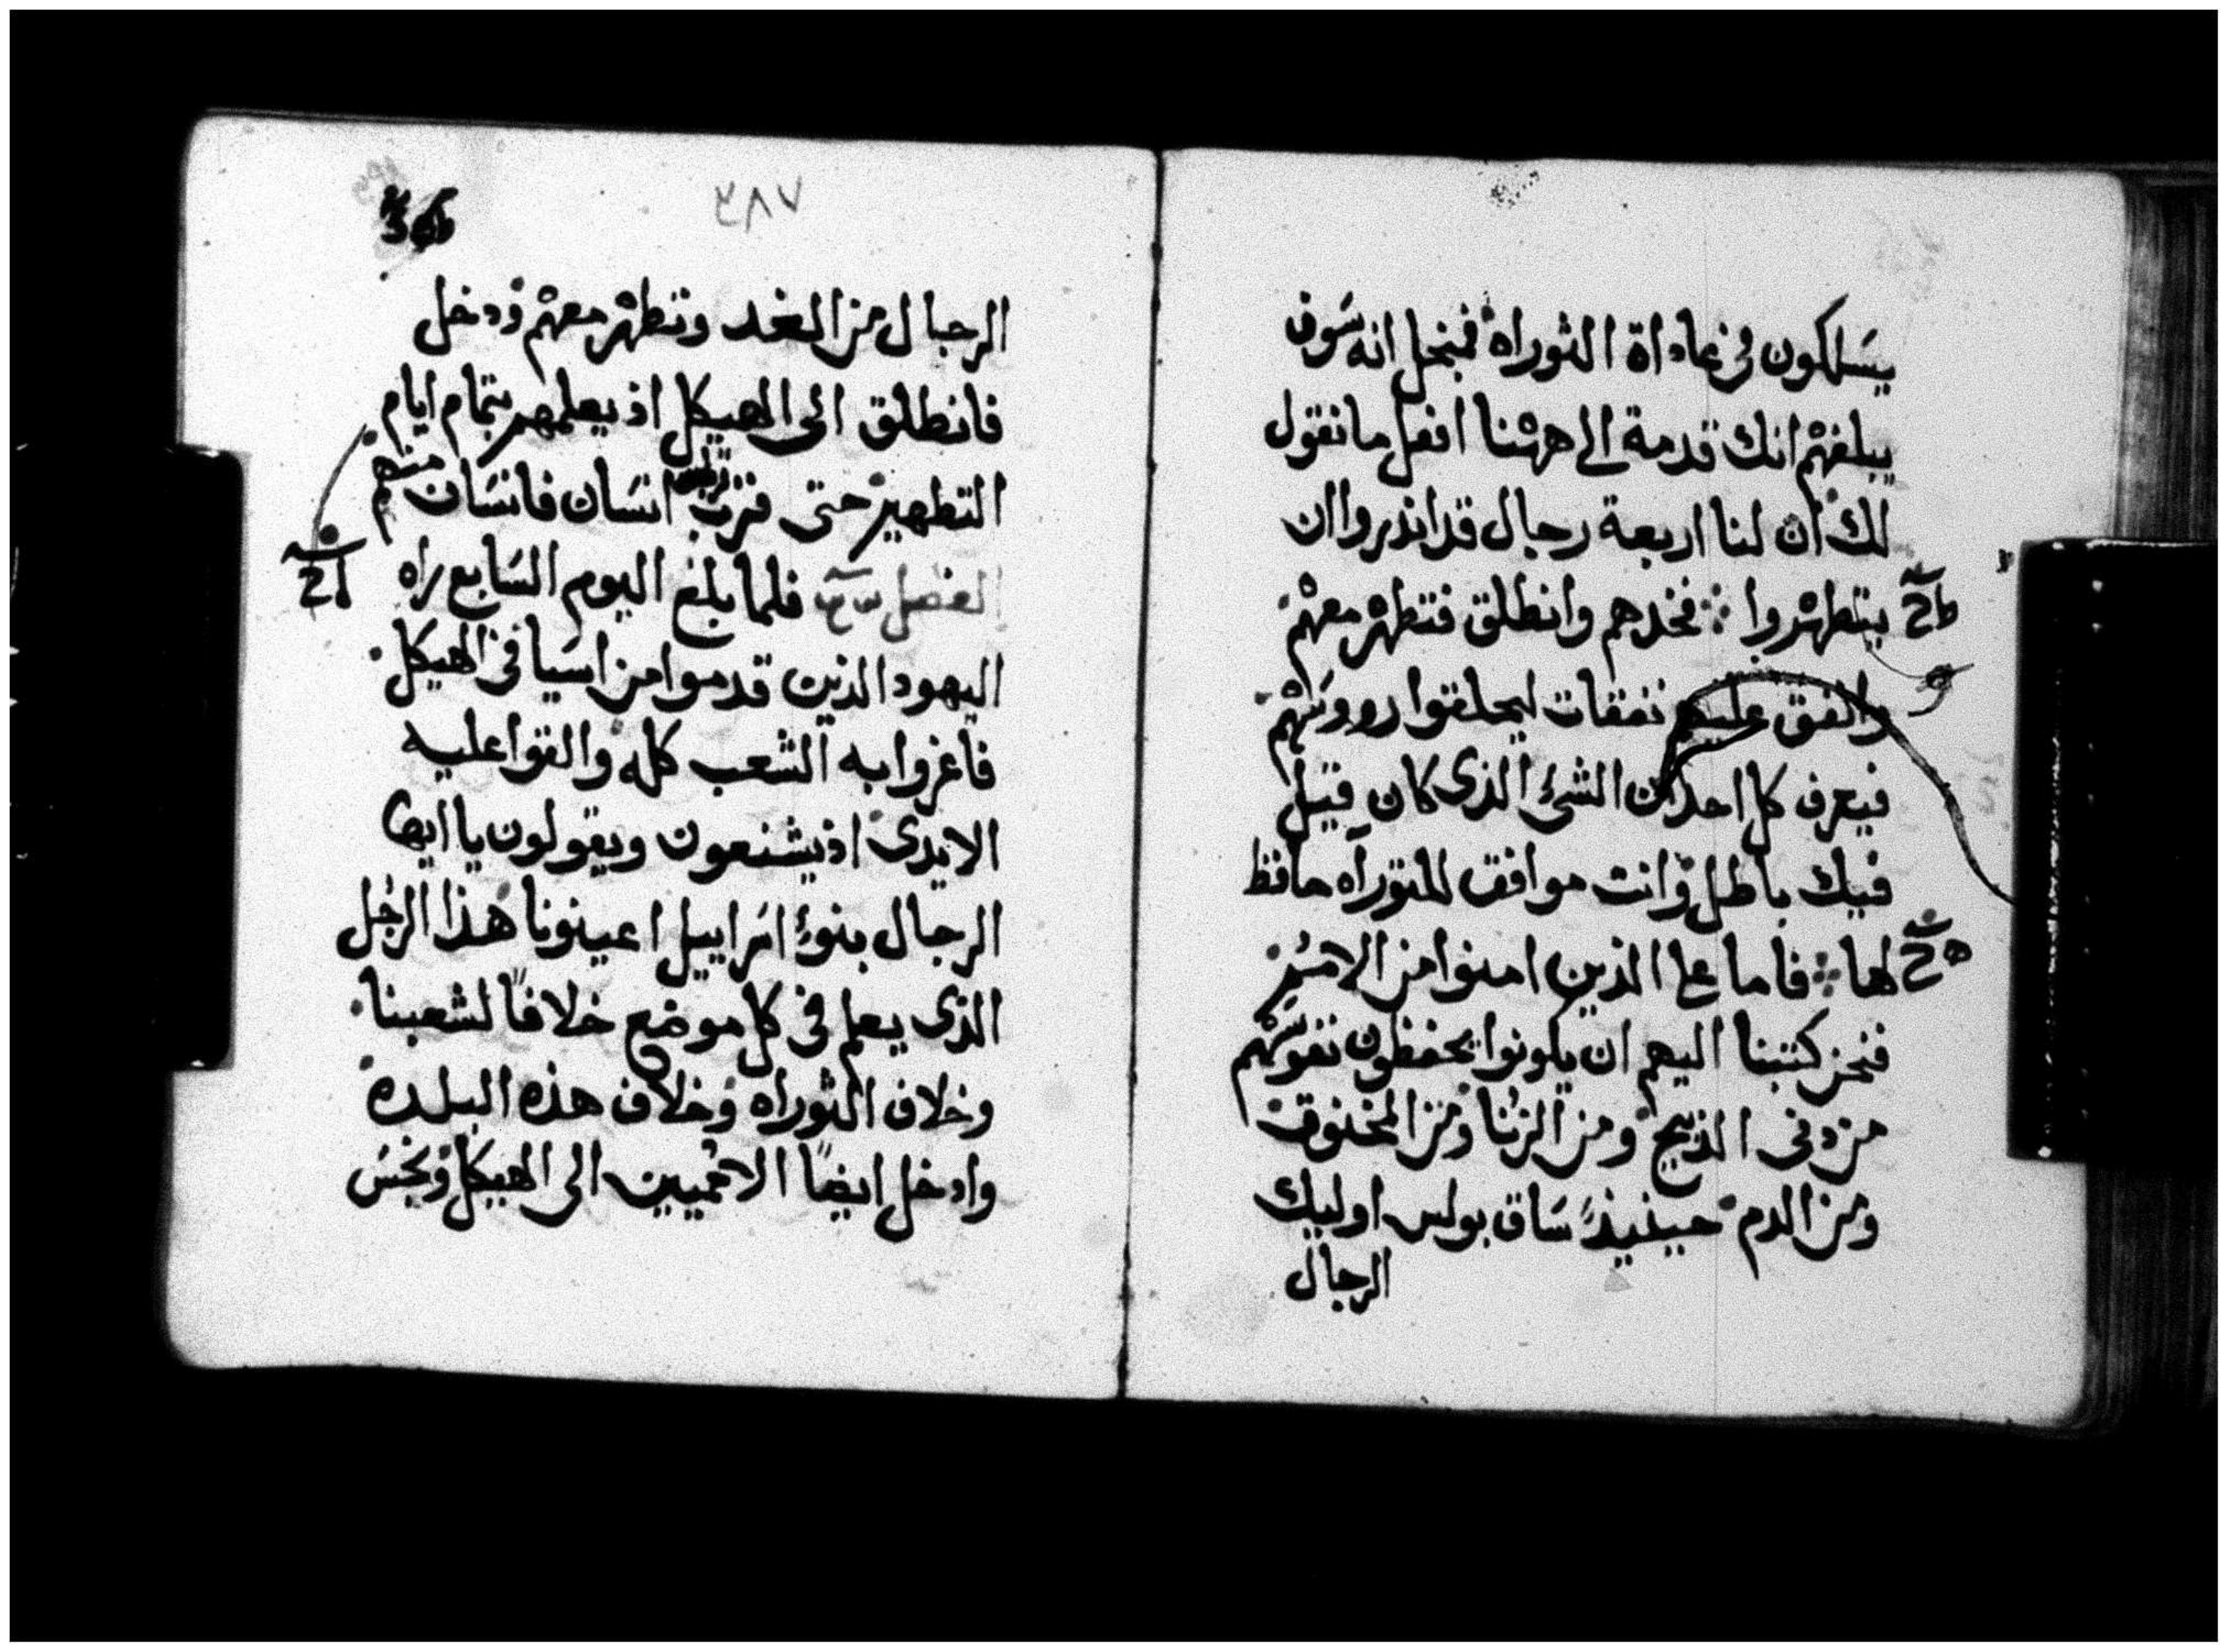 يسلكون في عاداة التوراه فبنحل انه سوف
يبلغهم انك قدمة الى ههنا افعل ما نقول
لك ان لنا اربعة رجال قد انذروا ان
يتطهروا فخدهم وانطلق فتطهر معهم
وانفق عليهم نفقات ليحلقوا رووسهم
فيعرف كل احد ان الشئ الذى كان قيل
فيك باطل وانت موافق للتوراه حافظ
لها فاما على الذين امنوا من الامم
فنحن كتبنا اليهم ان يكونوا يحفظون نفوسهم
من دفى الذبيح ومن الزنا ومن المخنوق
ومن الدم حينيذ ساق بولس اوليك
الرجال
٣٨٧
الرجال من الغد وتطهر معهم ودخل
فانطلق الى الهيكل اذ يعلمهم بتمام ايام
التطهير حتى قرب انسان فانسان منهم
الفصل فلما بلغ اليوم السابع راه
اليهود الذين قدموا من اسيا في الهيكل
فاغروا به الشعب كله والقوا عليه
الايدى اذ يشنعون ويقولون يا ايها
الرجال بنوء اسراييل اعينونا هذا الرجل
الذى يعلم في كل موضع خلافا لشعبنا
وخلاف التوراه وخلاف هذه البلدة
وادخل ايضا الامميين الى الهيكل ونجس